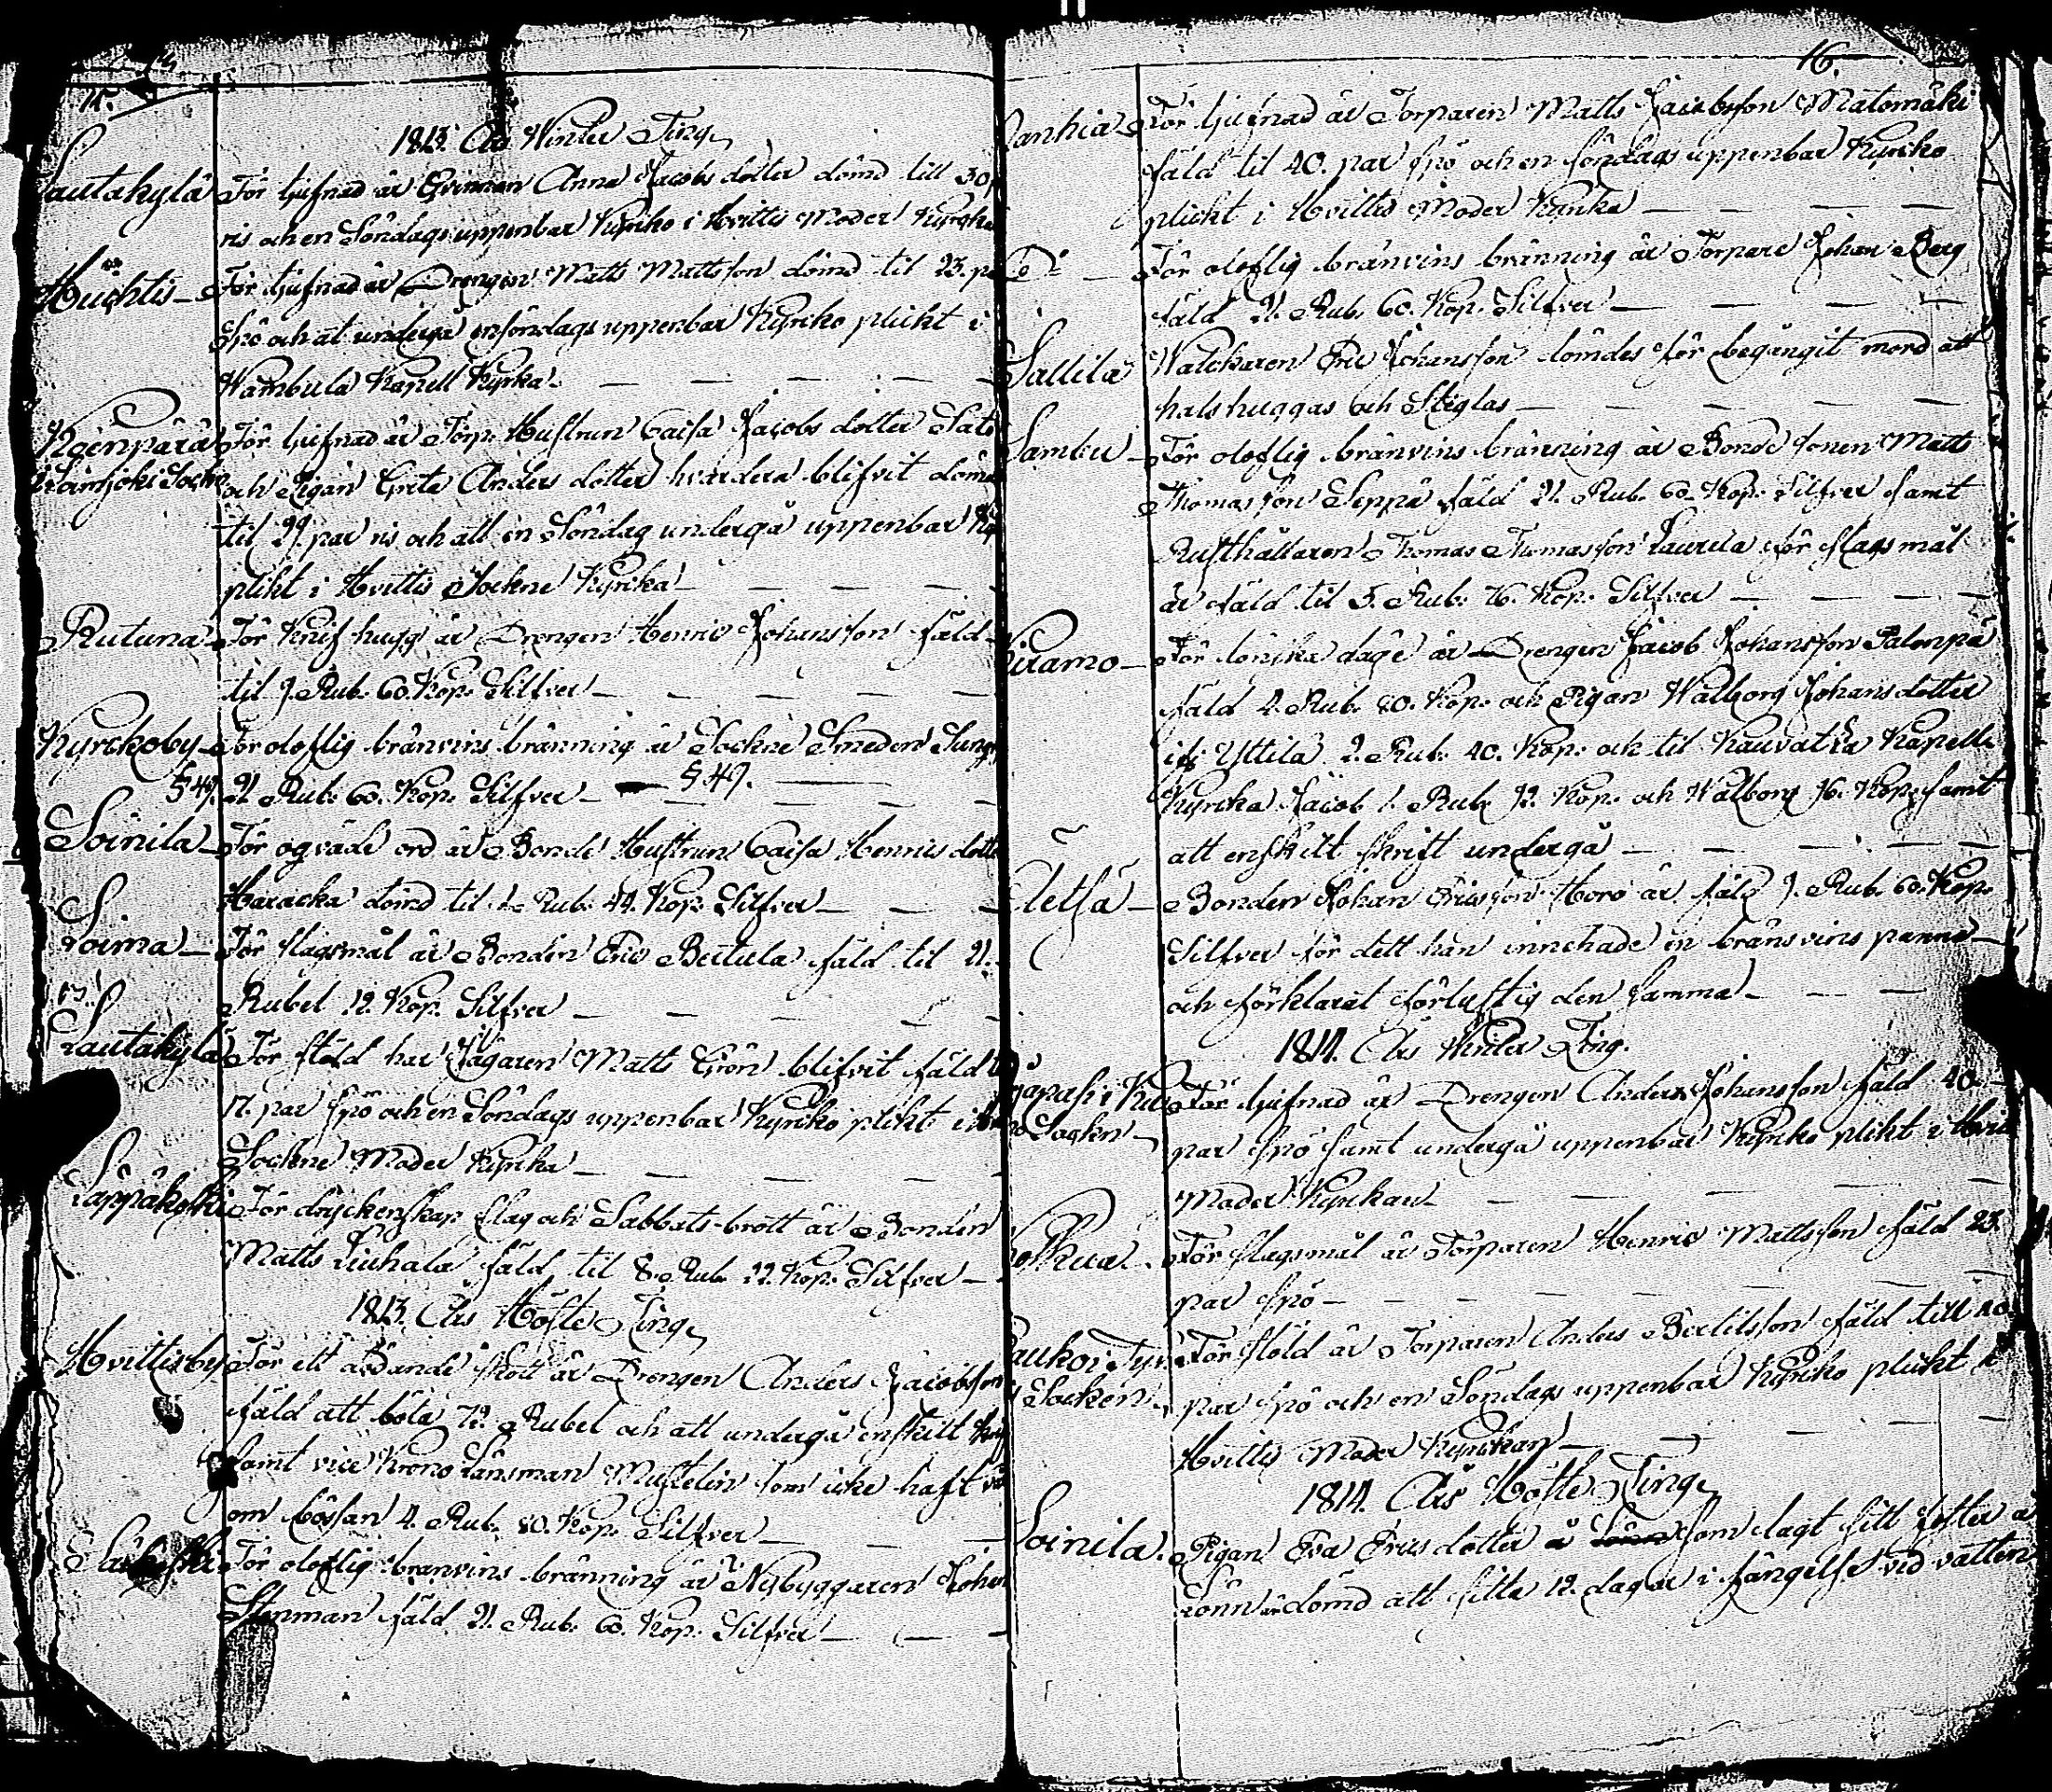 15.
1813. Års Winter Ting
Lautakylä För tjufnad är Qvinnan Anna Jacobs dotter dömd till 30
ris och en Söndags uppenbar Kyrcko i Hvittis Moder Kyrcka
Huchtis För tjufnad är Drengen Matts Mattsson dömd til 23. par
Spö och at undergå en söndags uppenbar Kyrcko plickt i
Wambula Kapell Kyrka
För tjufnad är Torp. Hustrun Caisa Jacobs dotter
Loimjoki Sockn och Pigan Greta Anders dotter hvardera blifvit dömd
til 29. par ris och att en Söndag undergå uppenbar
plikt i Hvittis Sockne Kyrcka
Rutuna För Knif hugg är Drengen Henric Johansson fäld
til 9. Rub. 60. Kop. Silfver
Kyrckoby För oloflig bränvins bränning är Sockne Smeden
§ 49. 21 Rub. 60. Kop. Silfver § 49.
Soinila För oqväde ord är Bonde Hustrun Caisa Henrics dotter
Haracka dömd til 1. Rub. 44. Kop. Silfver
Loima För slagsmål är Bonden Eric Bertula fäld til 21.
Rubel 12. Kop. Silfver
Lautakylä För stöld har Jägaren Matts Grön blifvit fäld
17. par spö och en Söndags uppenbar Kyrcko plikt i
Sockne Moder Kyrcka
För dryckenskap slag och Sabbats-brott är Bonden
Matts Liuhala fäld til 8. Rub. 22. Kop. Silfver
1813. Års Höste Ting
Hvittisby För ett dödande skott är Drengen Anders Jacobsson
fäld att böta 72. Rubel och att undergå enskilt
samt vice Krono Länsman Mustelin som icke haft
om bössan 4. Rub. 80. Kop. Silfver
För oloflig branvins bränning är Nybyggaren Johan
Stenman fäld 21. Rub. 60. Kop. Silfver
16.
För tjufnad är Torparen Matts Jacobsson Matomäki
fäld til 40. par spö och en söndags uppenbar Kyrcko
plickt i Hvittis Moder Kyrcka
För oloflig bränvins bränning är Torpare Johan Berg
fäld 21. Rub. 60. Kop. Silfver
Sallila Walckaren Eric Johansson dömdes för begångit mord att
halshuggas och Steglas
Sambu För oloflig bränvins bränning är Bonde sonen Matts
Thomasson Seppä fäld 21. Rub. 60. Kop. Silfver samt
Rusthållaren Thomas Thomasson Laurila för slagsmål
är fäld til 5. Rub. 76. Kop. Silfver
För lönska läge är Drengen Jacob Johansson Palonpä
fäld 4. Rub. 80. Kop. och Pigan Walborg Johansdotter
ifr. Yttilä 2. Rub. 40. Kop. och til Kauvatsa Kapell
Kyrcka Jacob 1. Rub. 92. Kop. och Walborg 96. Kop. samt
att enskilt skrift undergå
Äetsä Bonden Johan Ericsson Horo är fäld 9. Rub. 60. Kop.
Silfver för dett han innehade en bränsvins panna
och förklarat förlustig den samma
1814. Års Winter Ting.
För tjufnad är Drengen Anders Johansson fäld 40.
Sockn par spö samt undergå uppenbar Kyrcko plikt i Hvit
Moder Kyrckan
För slagsmål är Torparen Henric Mattsson fäld 23.
par spö
För stöld är Torparen Anders Bertilsson fäld till 40.
Socken par spö och en Söndags uppenbar Kyrcko plickt i
Hvittis Moder Kyrckan
1814. Års Höste Ting
Soinila. Pigan Eva Erics dotter som lagt sitt foster å
Lönn är dömd att sitta 12. dagar i fängelse vid vatten